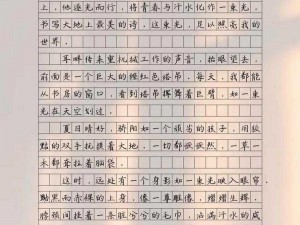 上，他逐光而行，将青春与汗水忆作一束光，
书写大地上最美的诗，这束光，足以照亮我的
世界。
耳畔传来重机械工作的声音，抬眼望去，
前面是一个巨大的橙红色塔吊，每天，我都能
从书房的窗口，看到塔吊挥舞着巨臂，如一束
光在天空划过。
夏日晴好，骄阳如一个顽皮的孩子，用纹
热的双手抚摸着大地，一切都蔫蔫然，一草一
木都牵拉着脑袋。
这时，远处有一个身影如一束光映入眼帘，
黝黑而赤裸的上身，像一尊雕像，熠熠生辉，
脖颈间挂着一条脏兮兮的毛巾，沾满汗水的咸